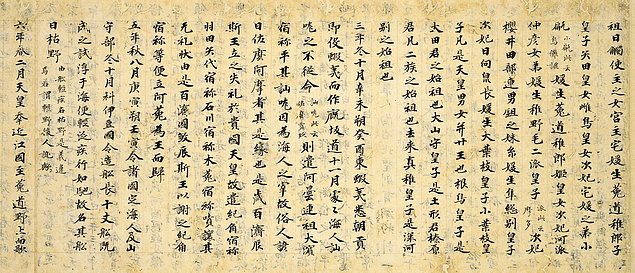 祖日觸使主之女宮主宅媛生菟道稚郎子
皇子矢田皇女雌鳥皇女次妃宅媛之弟小
甂媛生菟道稚郎姬皇女次妃河派
仲彥女弟媛生稚野毛二派皇子 次妃
櫻井田部連男鉏之妹糸媛生隼總別皇子
次妃日向泉長媛生大葉枝皇子小葉枝皇
子凡是天皇男女并廿王也根鳥皇子是
大田君之始祖也大山守皇子是土形君榛原
君凡二族之始祖也去来真稚皇子是深河
別之始祖也
三年冬十月辛未朔癸酉東蝦夷悉朝貢
即役蝦夷而作厩坂道十一月處々海人訕
哤之不從命 則遣阿曇連祖大濱
宿祢平其訕哤因為海人之宰故俗人諺
曰佐麼阿摩者其是緣也是歲百濟辰
斯王立之失礼於貴國天皇故遣紀角宿祢
羽田矢代宿祢石川宿祢木菟宿祢嘖讓其
无礼狀由是百濟國殺辰斯王以謝之紀角
宿祢等便立阿花為王而歸
五年秋八月庚寅朔壬寅令諸國定海人及山
守部冬十月科伊豆國令造船長十丈船既
成之試浮于海便輕泛疾行如馳故名其船
曰枯野 由船輕疾名枯野是義違焉若謂輕野後人訛歟
六年春二月天皇幸近江國至菟道野上而歌